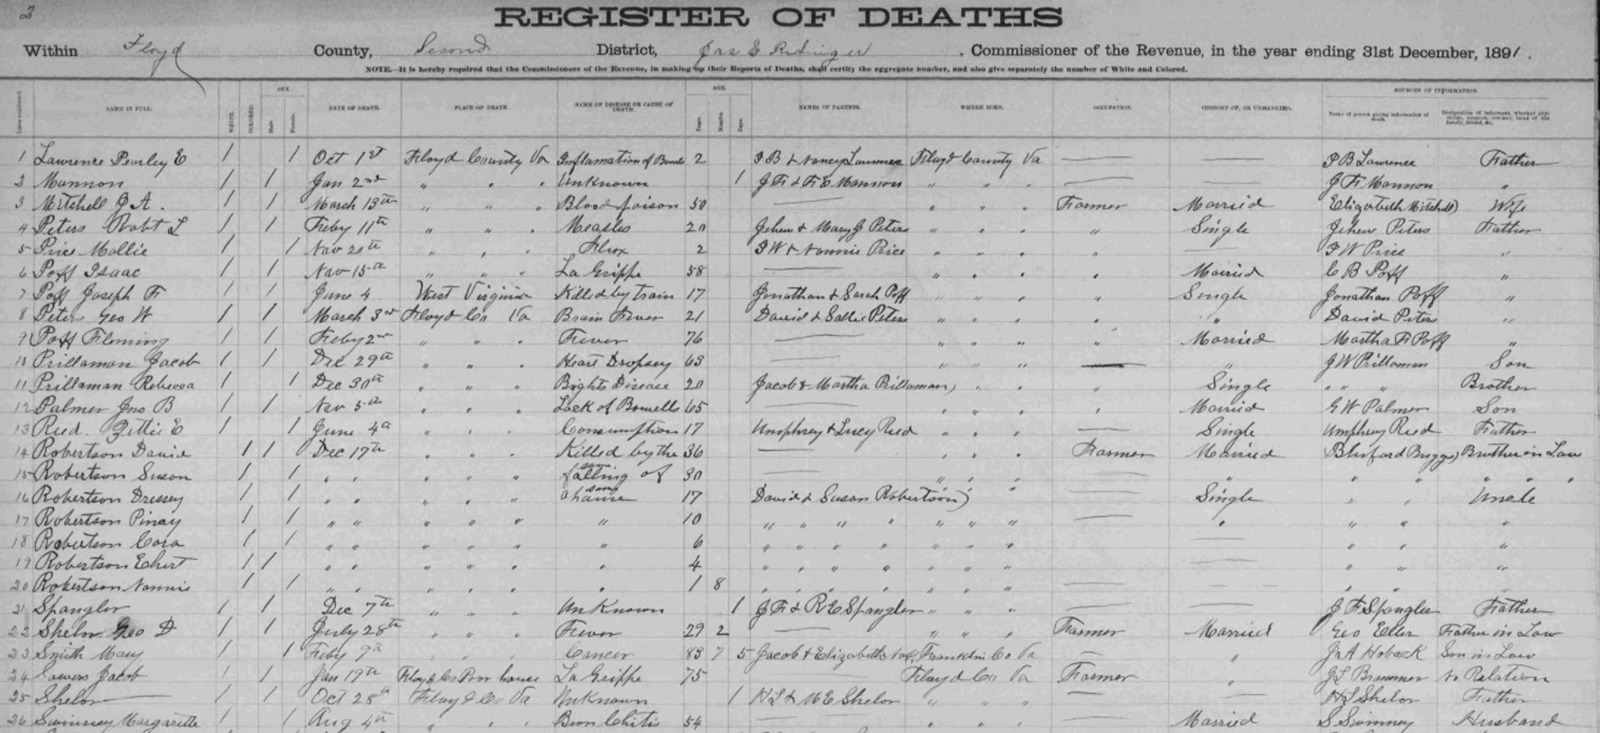 2
REGISTER OF DEATHS
Within Floyd County, Second District, Jas E Ridinger, Commissioner of the Revenue, in the year ending 31st December, 1891.
NOTE.—It is hereby required that the Commissioners of the Revenue, in making up their Reports of Deaths, shall certify the aggregate number, and also give separately the number of White and Colored.
NAME IN FULL. WHITE. COLORED. SEX. Male. Female. DATE OF DEATH. PLACE OF DEATH. NAME OF DISEASE OR CAUSE OF DEATH. AGE. Years. Months. Days. NAMES OF PARENTS. WHERE BORN. OCCUPATION. CONSORT OF, OR UNMARRIED. SOURCES OF INFORMATION. Name of person giving information of death.
1 Lawrence Pearley E 1 1 Oct 1st Floyd County Va Inflamation of 2 P B & Nancy Lawrence Floyd County Va — P B Lawrence Father
2 Mannon 1 1 Jan 2nd " " " Unknown 1 J F & F E Mannon " " " — J F Mannon "
3 Mitchell J A. 1 1 March 13th " " " Blood poison 50 — " " " Farmer Married Elizabeth Mitchell Wife
4 Peters Robt L 1 1 Feby 11th " " " Measles 20 Jehew & Mary J Peters " " " " Single Jehew Peters Father
5 Price Mollie 1 1 Nov " " " Flux 2 I W & Nannie Price " " " " — I W Price "
6 Poff Isaac 1 1 Nov 15th " " " La Grippe 58 — " " " " Married C B Poff "
7 Poff Joseph F 1 1 June 4 West Virginia Killed by train 17 Jonathan & Sarah Poff " " " " Single Jonathan Poff "
8 Peters Geo W 1 1 March 3rd Floyd Co Va Brain Fever 21 David & Sallie Peters " " " " " David Peters "
9 Poff Fleming 1 1 Feby 2nd " " " Fever 76 — " " " " Married Martha F Poff "
10 Prillaman Jacob 1 1 Dec 29th " " " Heart Dropsey 63 — " " " — " J W Prillaman Son
11 Prillaman Rebecca 1 1 Dec 30th " " " Brights Disease 20 Jacob & Martha Prillaman " " " Single " " " Brother
12 Palmer Jno B 1 1 Nov 5th " " " Lock of Bowells 65 — " " " " Married G W Palmer Son
13 Reed Zettie E 1 1 June 4th " " " Consumption 17 Umphrey & Lucy Reed " " " — Single Umphrey Reed Father
14 Robertson David 1 1 Dec 17th " " " Killed by the 36 — " " " Farmer Married Bluford Buggs Brother in Law
15 Robertson Susan 1 1 " " " " " falling of 30 — " " " — " " " " "
16 Robertson Dressey 1 1 " " " " " a house 17 David & Susan Robertson " " — Single " " Uncle
17 Robertson Piney 1 1 " " " " " " 10 " " " " " " " — " " " "
18 Robertson Cora 1 1 " " " " " " 6 " " " " " " " — — " " "
19 Robertson Ehert 1 1 " " " " " " 4 " " " " " " " — — " " "
20 Robertson Nannie 1 1 " " " " " " 1 8 " " " " " " " — — " " "
21 Spangler 1 1 Dec 7th " " " Unknown 1 J F & R E Spangler " " " — — J F Spangler Father
22 Shelor Geo D 1 1 July 28th " " " Fever 29 2 — " " " Farmer Married Geo Eller Father in Law
23 Smith Mary 1 1 Feby 9th " " Cancer 83 7 5 Jacob & Elizabeth Franklin Co Va — " Ja A Hoback Son in Law
24 Sowers Jacob 1 1 Jan 19th Floyd Co Poor house La Grippe 75 Floyd Co Va Farmer " J L Brammer No Relation
25 Shelor — 1 1 Oct 28th Floyd Co Va Unknown 1 H L & M E Shelor " " " — — H L Shelor Father
26 Swinney Margarette 1 1 Aug 4th " " " Bronchitis 54 " " " — Married S Swinney Husband